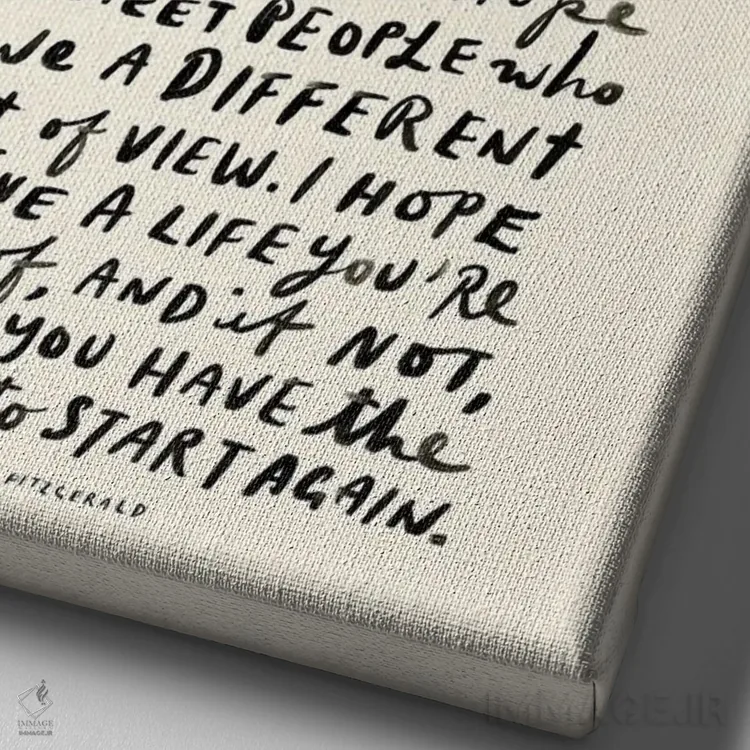 HOPE
MEET PEOPLE who
A DIFFERENT
of VIEW. I HOPE
A LIFE YOU'RE
of, AND if NOT,
YOU HAVE the
to START AGAIN.
FITZGERALD
IMMAGE
IMMAGE.IR
IMMAGE.IR